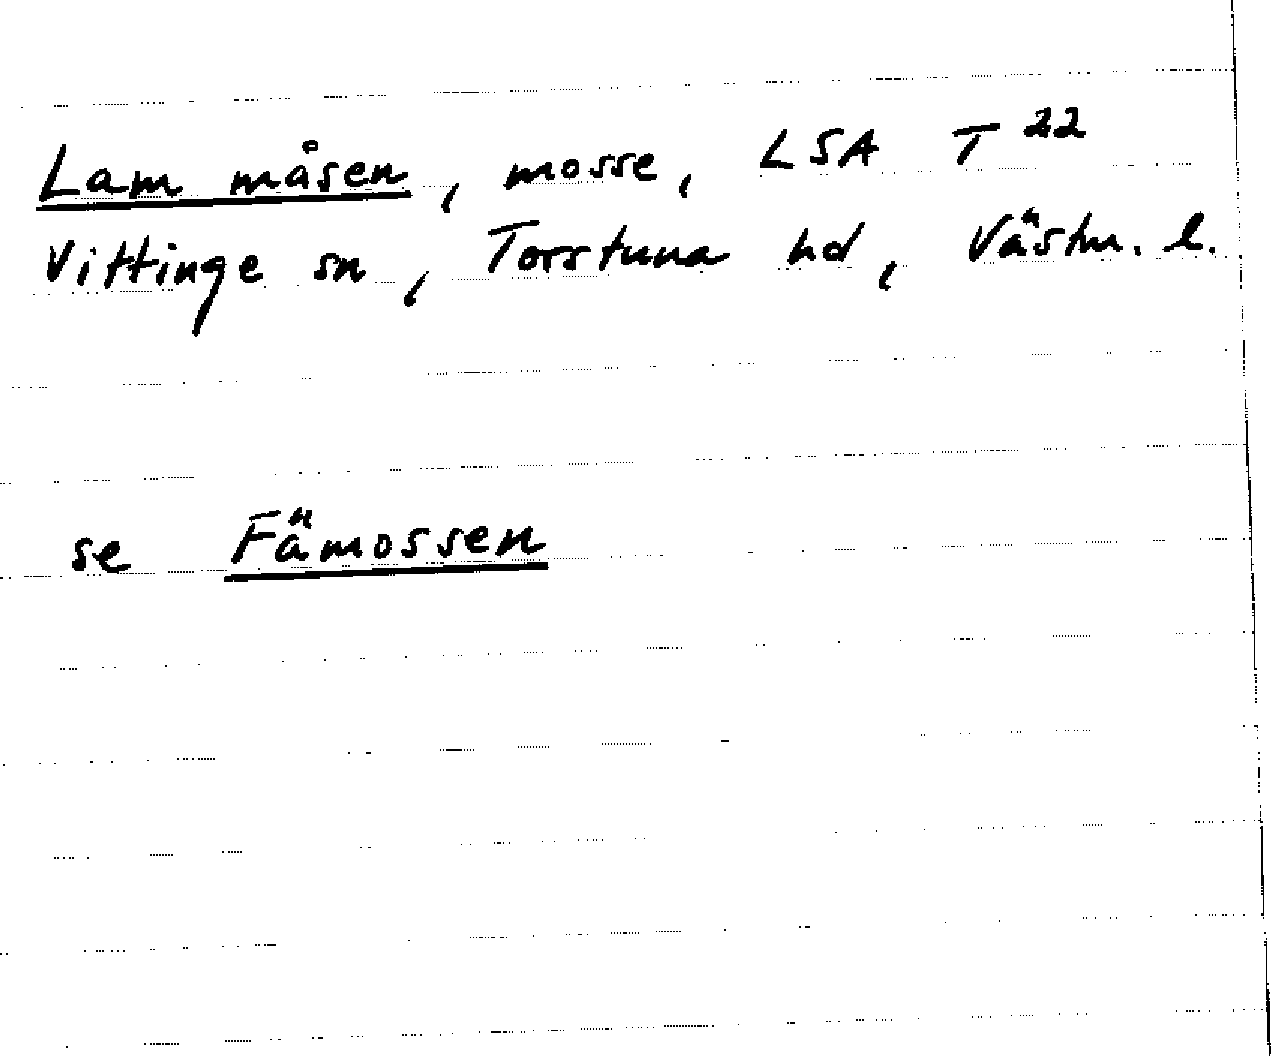 Lam måsen, mosse, LSA T²²
Vittinge sn, Torstuna hd, Västm. l.
se Fämossen